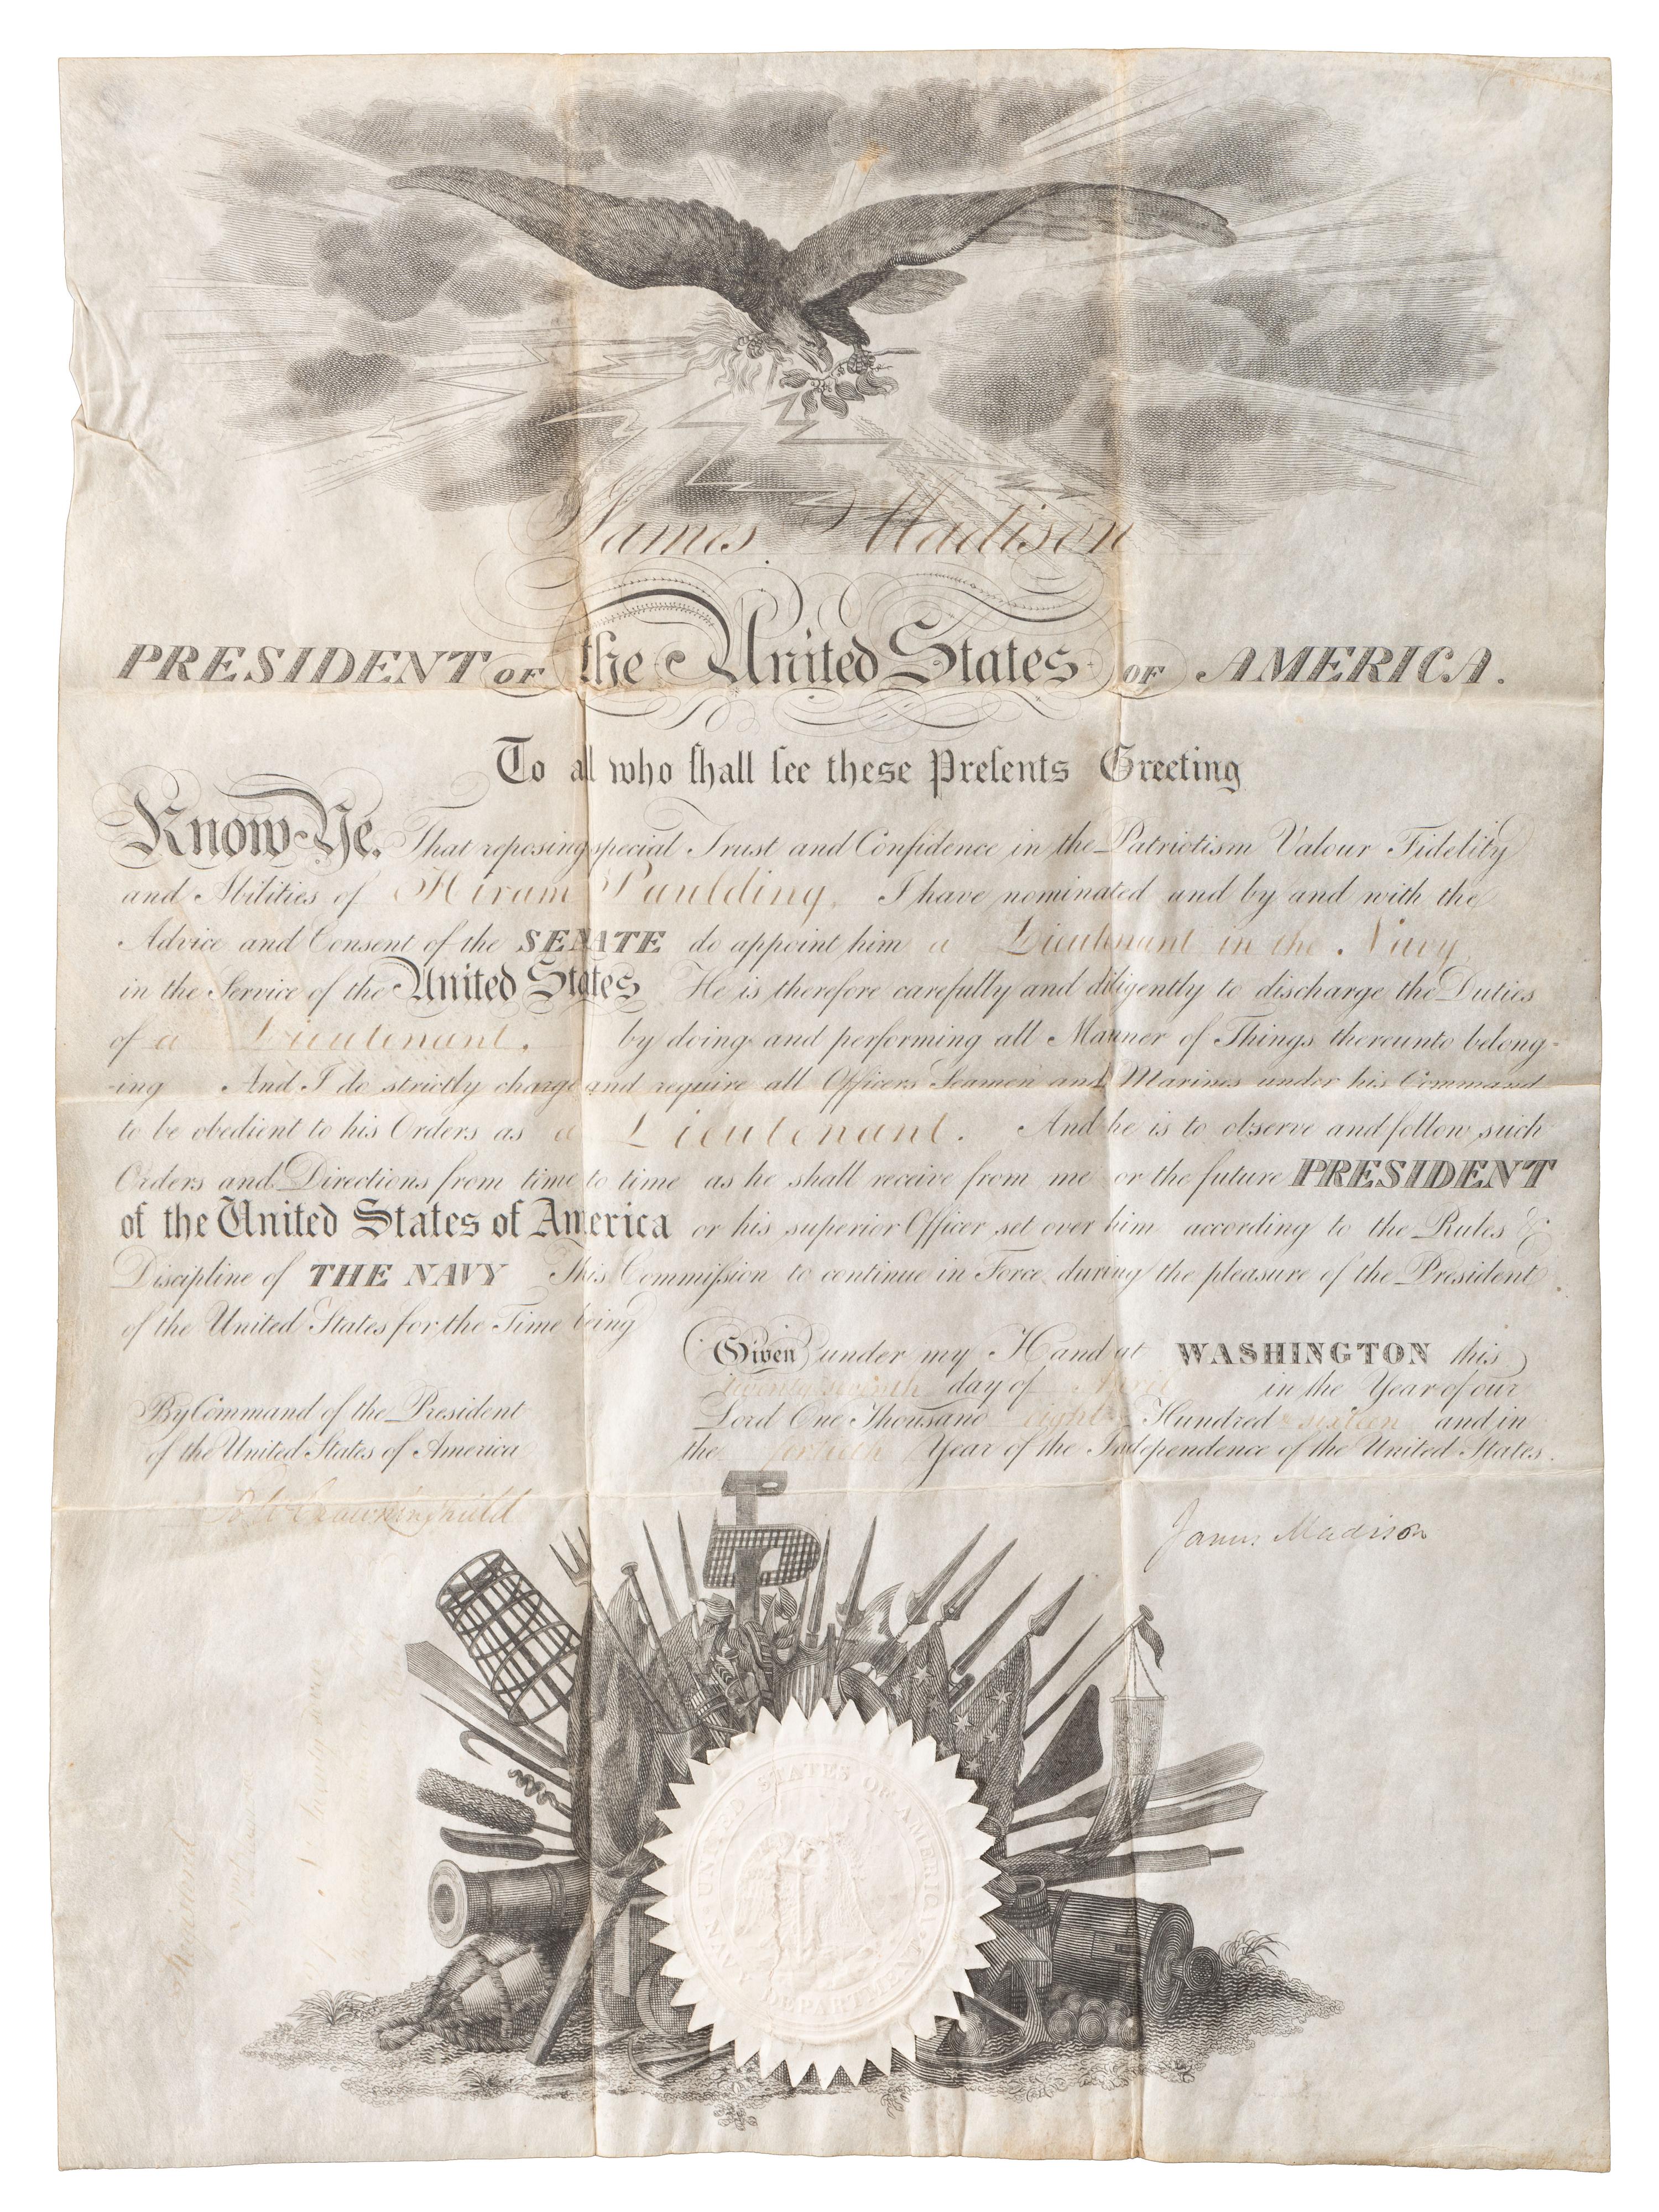 James Madison
PRESIDENT OF the United States OF AMERICA.
To all who ſhall ſee these Preſents Greeting
Know Ye, That reposing special Trust and Confidence in the Patriotism Valour Fidelity
and Abilities of Hiram Paulding, I have nominated and by and with the
Advice and Consent of the SENATE do appoint him a Lieutenant in the Navy
in the Service of the United States He is therefore carefully and diligently to discharge the Duties
of a Lieutenant. by doing and performing all Manner of Things thereunto belong-
-ing And I do strictly charge and require all Officers Seamen and Marines under his Command
to be obedient to his Orders as a Lieutenant. And he is to observe and follow such
Orders and Directions from time to time as he shall receive from me or the future PRESIDENT
of the United States of America or his superior Officer set over him according to the Rules &
Discipline of THE NAVY This Commiſsion to continue in Force during the pleasure of the President
of the United States for the Time being
Given under my Hand at WASHINGTON this
twenty seventh day of April in the Year of our
Lord One Thousand eight Hundred & sixteen and in
the fortieth Year of the Independence of the United States.
By Command of the President
of the United States of America
B W Crowninshield
James Madison
UNITED STATES OF AMERICA
NAVY DEPARTMENT
Registered